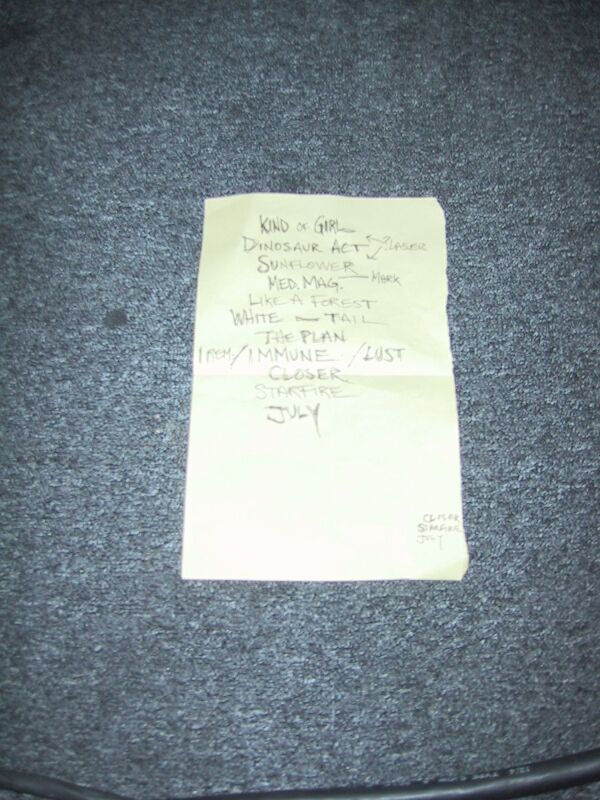 KIND OF GIRL
DINOSAUR ACT
LASER
SUNFLOWER
MARK
MED. MAG.
LIKE A FOREST
WHITE - TAIL
THE PLAN
IMMUNE / LUST
CLOSER
STARFIRE
JULY
CLOSER
STARFIRE
JULY